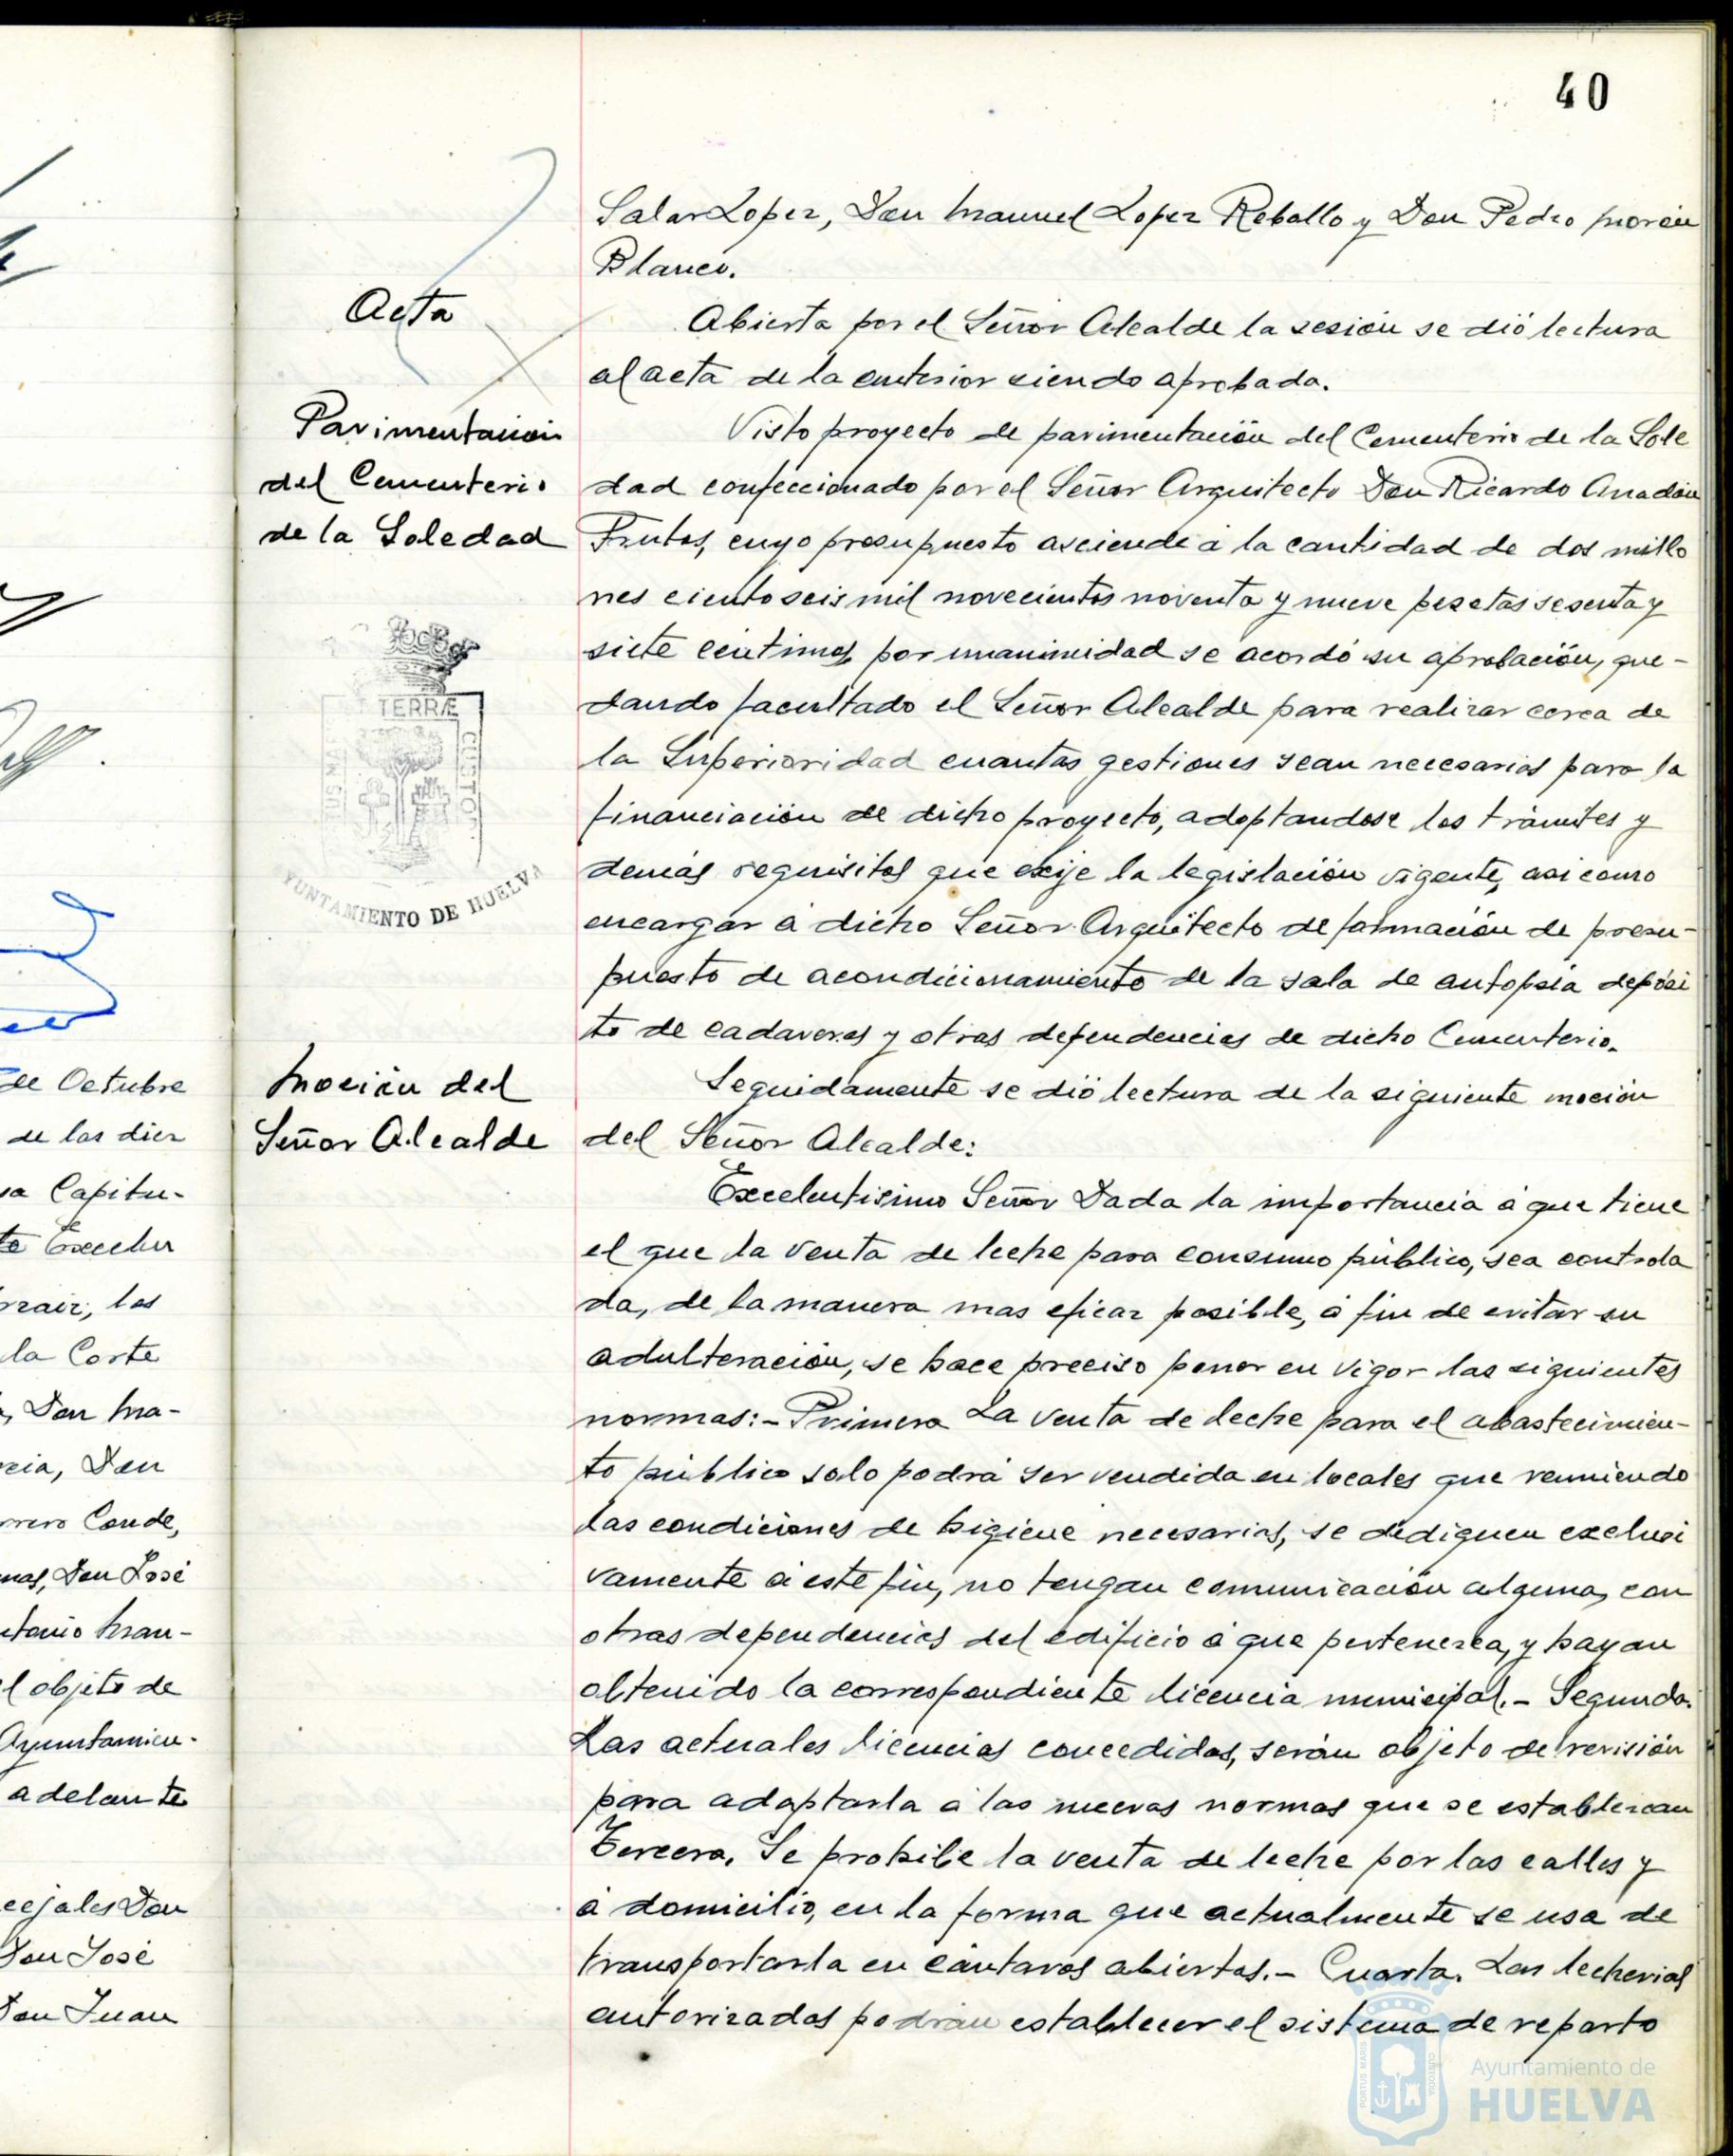 40
Salas Lopez, Don Manuel Lopez Reballo y Don Pedro Morón
Blanco.
Acta
Abierta por el Señor Alcalde la sesión se dió lectura
al acta de la anterior siendo aprobada.
Pavimentacion
del Cementerio
de la Soledad
Visto proyecto de pavimentación del Cementerio de la Sole
dad confeccionado por el Señor Arquitecto Don Ricardo Anadón
Frutos, cuyo presupuesto asciende á la cantidad de dos millo
nes ciento seis mil novecientos noventa y nueve pesetas sesenta y
siete centimos, por unanimidad se acordó su aprobación, que-
dando facultado el Señor Alcalde para realizar cerca de
la Superioridad cuantas gestiones sean necesarias para la
financiación de dicho proyecto, adoptandose los trámites y
demás requisitos que exije la legislación vigente, asi como
encargar á dicho Señor Arquitecto de formación de presu-
puesto de acondicionamiento de la sala de autopsia depósi
to de cadaveres y otras dependencias de dicho Cementerio.
TERRÆ
CUSTO
AYUNTAMIENTO DE HUELVA
Moción del
Señor Alcalde
Seguidamente se dió lectura de la siguiente moción
del Señor Alcalde:
Excelentisimo Señor Dada la importancia á que tiene
el que la venta de leche para consumo público, sea controla
da, de la manera mas eficaz posible, á fin de evitar su
adulteración, se hace preciso poner en vigor las siguientes
normas:- Primera La venta de leche para el abastecimien-
to público solo podrá ser vendida en locales que reuniendo
las condiciones de higiene necesarias, se dediquen exclusi
vamente á este fin, no tengan comunicación alguna, con
otras dependencias del edificio á que pertenezca, y hayan
obtenido la correspondiente licencia municipal.- Segunda.
Las actuales licencias concedidas, serán objeto de revisión
para adaptarla á las nuevas normas que se establezcan
Tercera. Se prohibe la venta de leche por las calles y
á domicilio, en la forma que actualmente se usa de
transportarla en cántaros abiertos.- Cuarta. Las lecherias
autorizadas podrán establecer el sistema de reparto
de Octubre
de las diez
sa Capitu-
te Excelen
rraiz, los
la Corte
, Don Ma-
cia, Don
rrero Conde,
mas, Don José
ntonio Man-
l objeto de
Ayuntamien-
adelante
cejales Don
Don José
Don Juan
Ayuntamiento de
HUELVA